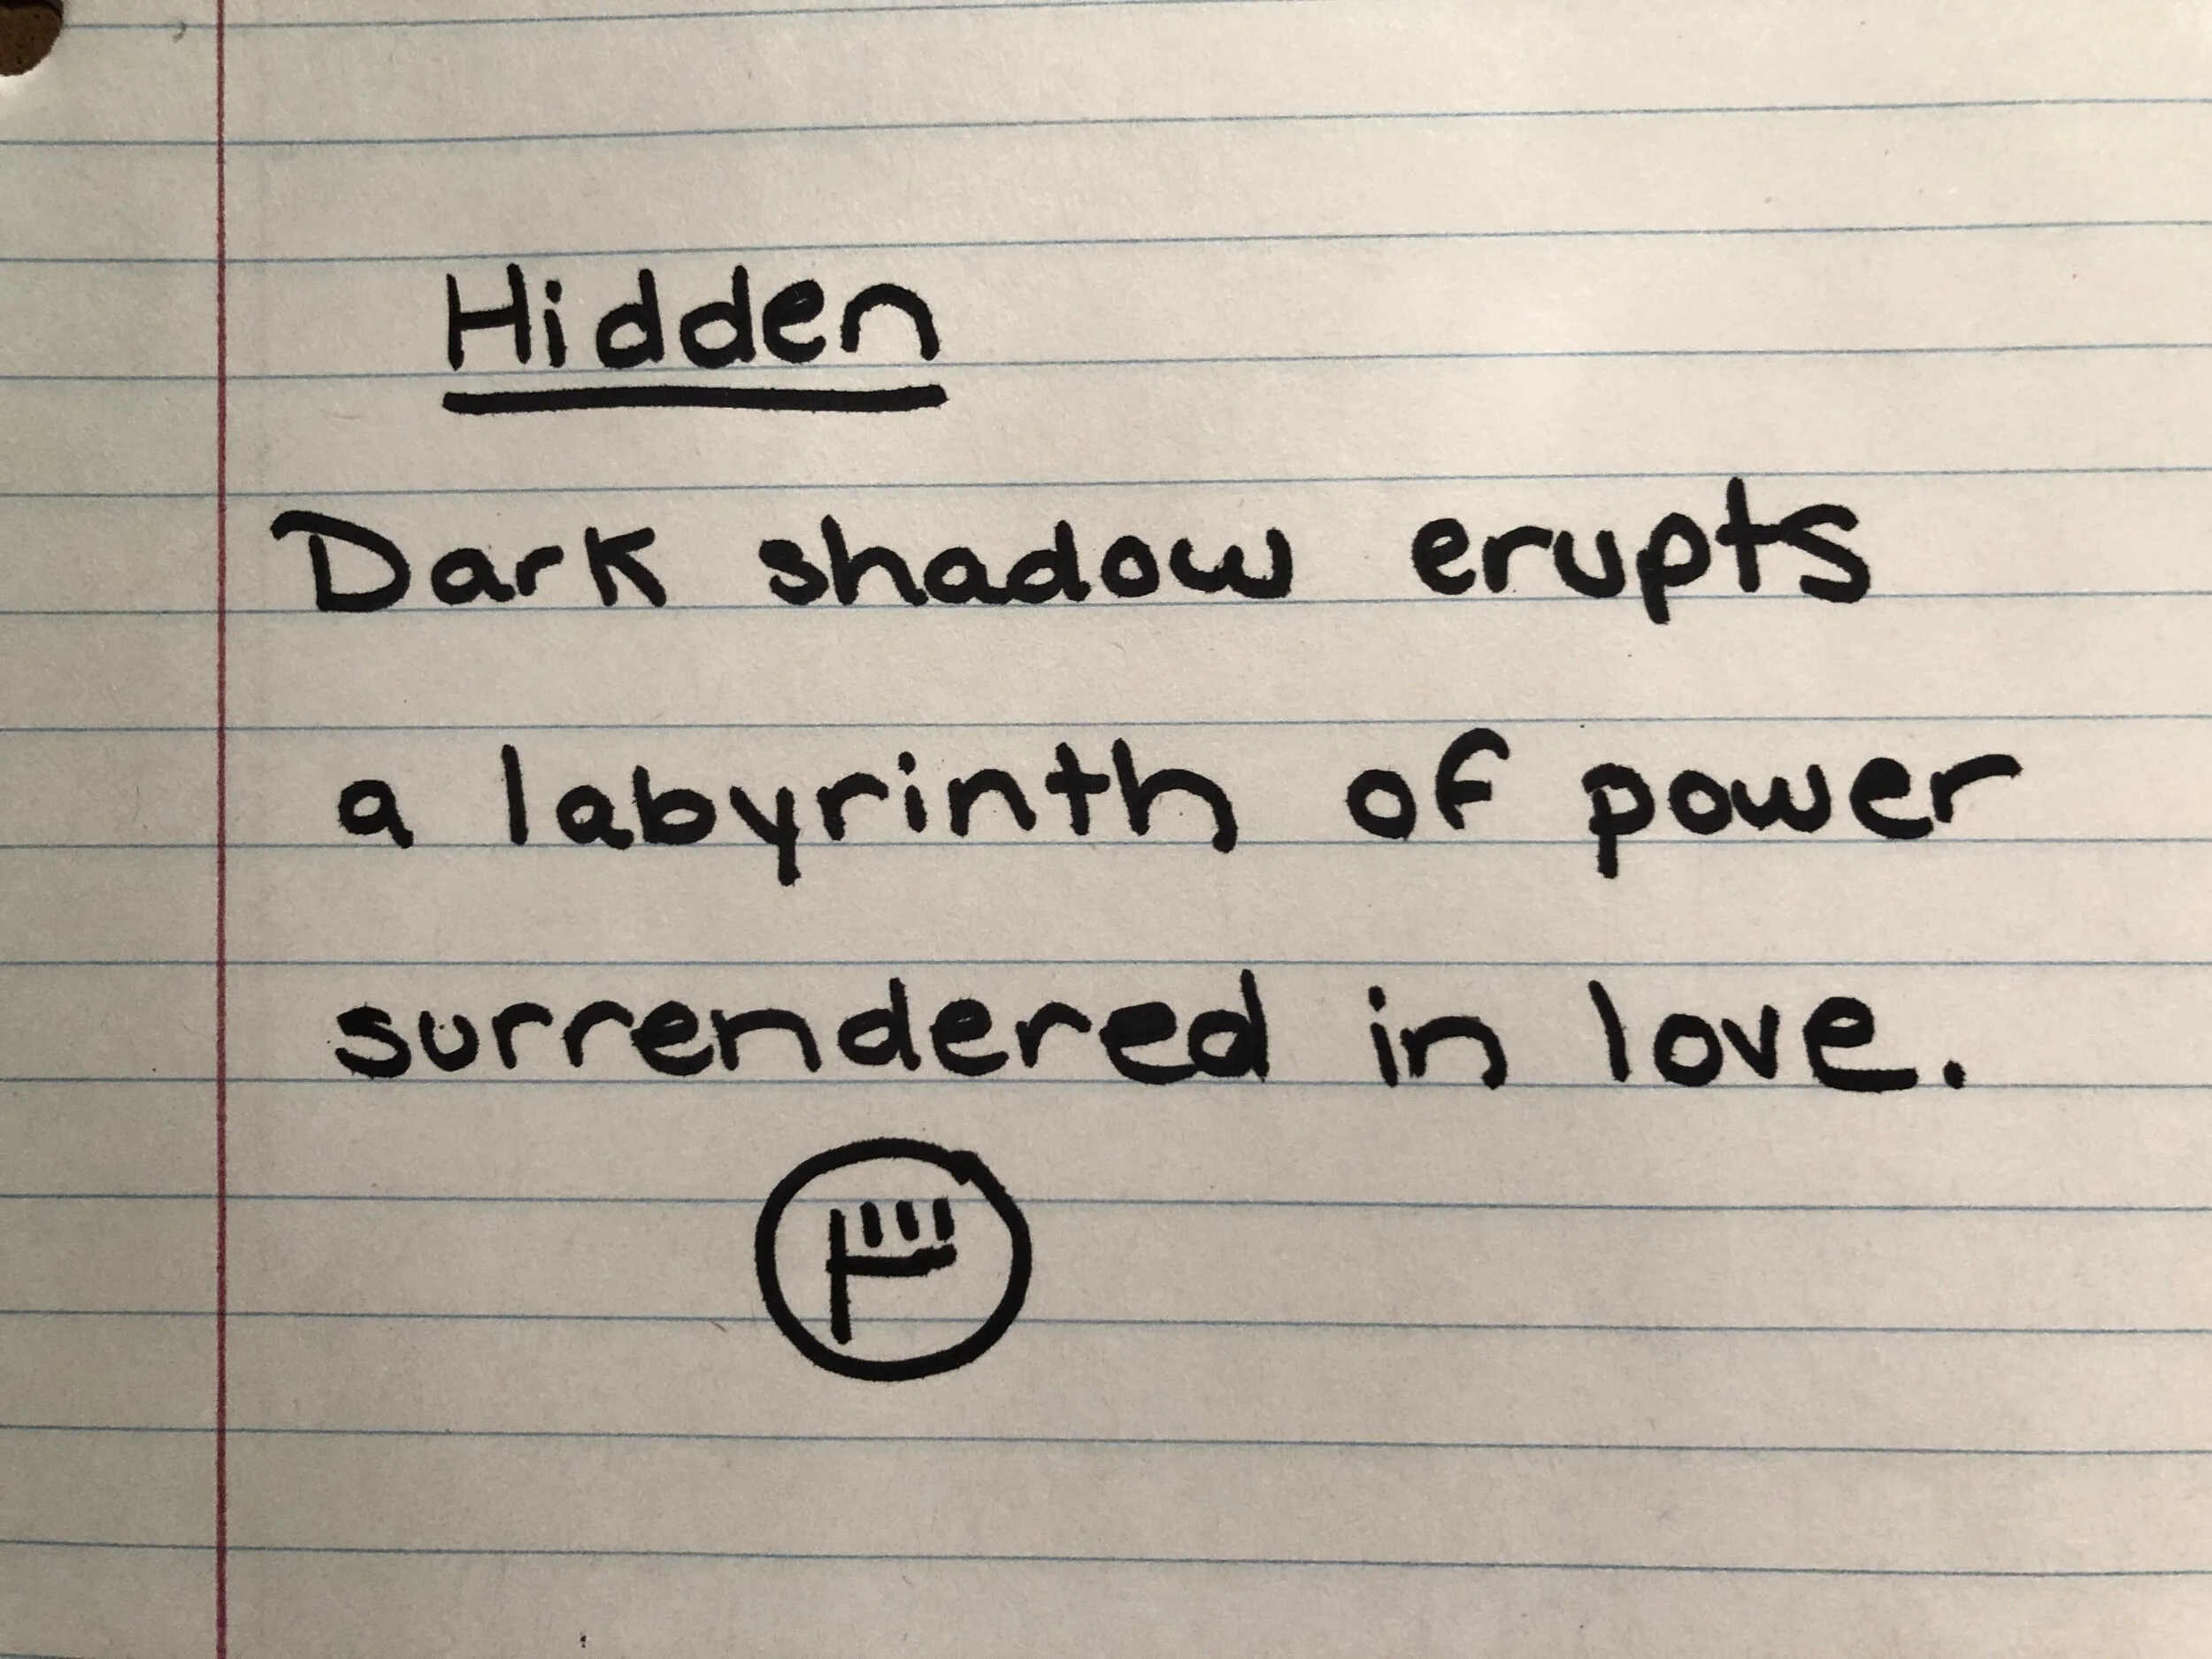 Hidden
Dark shadow erupts
a labyrinth of power
surrendered in love.